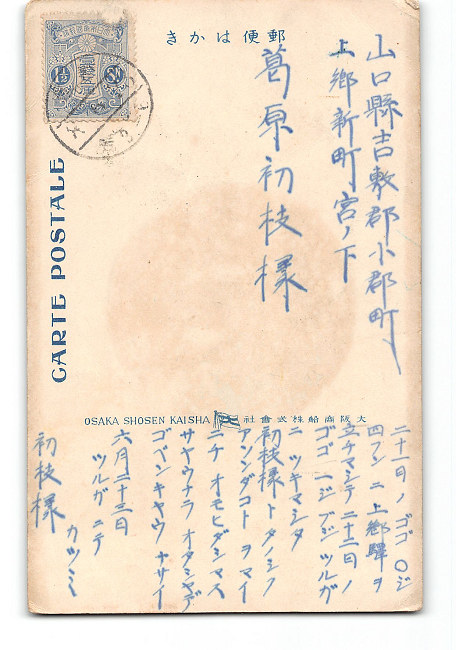 郵便はかき
山口縣吉敷郡小郡町
上郷新町宮ノ下
葛原初枝様
CARTE POSTALE
OSAKA SHOSEN KAISHA 大阪商船株式會社
二十一日ノ ゴゴ 〇ジ
四フン ニ 上郷驛ヲ
立チマシテ二十二日ノ
ゴゴ 一ジ ブジ ツルガ
ニ ツキマシタ
初枝様 ト タノシク
アソンダコト ヲ マイ
ニチ オモヒダシマス
サヤウナラ オタシヤデ
ゴベンキヤウ ナサイ
六月二十三日
ツルガ ニテ
カツミ
初枝様